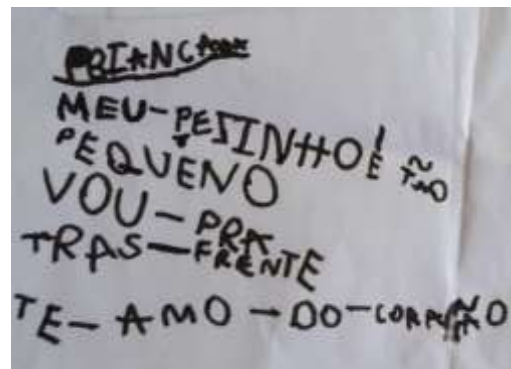 MEU-PEZINHO É TÃO
PEQUENO
VOU-PRA
TRAS-FRENTE
TE-AMO-DO-CORAÇÃO